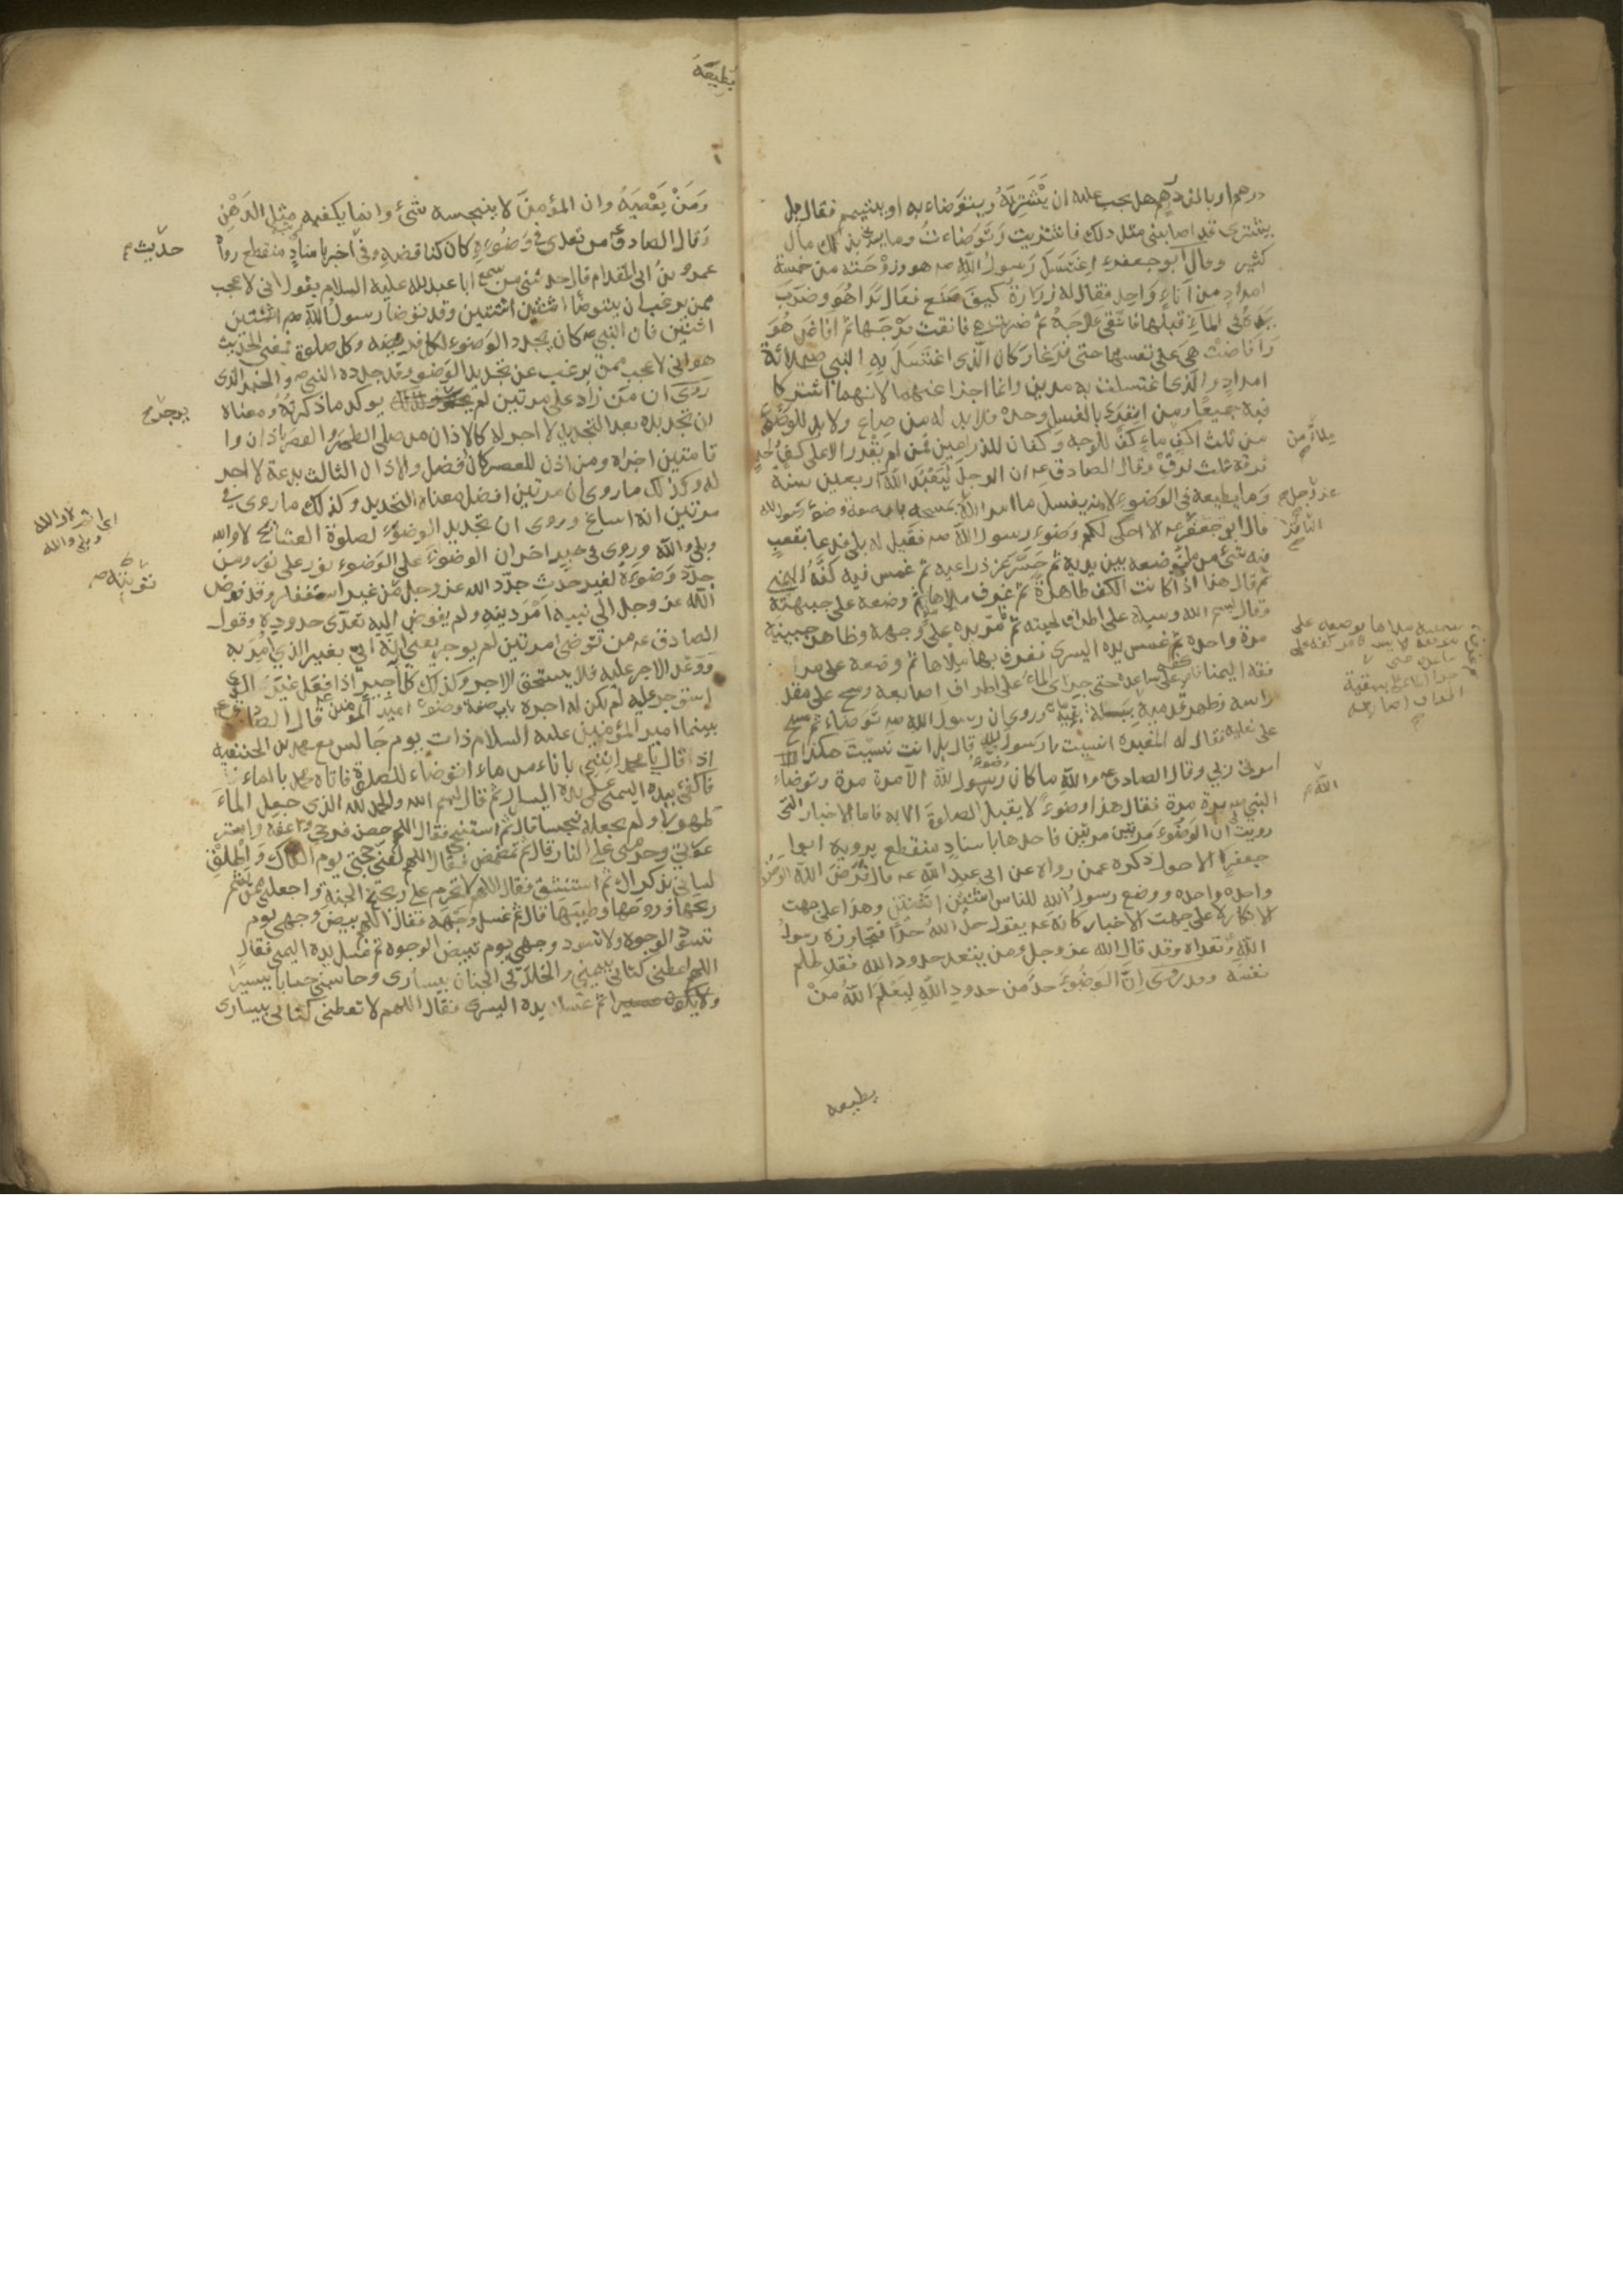 درهم او بالف درهم هل يجب عليه ان يَشْتَرِيَهُ ويتوَضاء به او يتيمم فقال بل
يشترى قد اصابنى مثل ذلك فاشتريت وَتَوَضاءتُ وما يسؤنى بذلك مال
كثير وقال ابو جعفرء اِغتَسَلَ رَسولُ الله صـ هو وزوْجَته من خمسة
امدادٍ من اناءٍ وَاحِدٍ فقال له زرَارَة كيفَ صَنَع فقال بَدَا هُوَ وضَرَبَ
يَدَهُ فى الماءِ قبلها فانقى فرْجَهُ ثم ضربت هى فانقت فرْجَها ثم افاض هُوَ
وَافاضتْ هىَ على نفسها حتى فرَغا وَكان الّذى اغتَسَلَ بِهِ النبى صـ ثلاثة
امدادٍ والّذى اغتسلت به مدين وانما اجزا عنهما لانهما اشتركا
فيه جميعًا ومن انفرَدَ بالغسل وحده فلا بد له من صاعٍ ولا بد للوضوء
من ثلث اكفٍ ماءٍ كفّ للوجه وَكفان للذراعين فمن لم يقْدر الا على كفٍّ واحدٍ
فرقه ثلث فرقٍ وقال الصادق عـ ان الرجلَ لَيَعْبُدُ اللهَ اربعين سنة
وَما يطيعه فى الوَضوءِ لانه يغسل ما امر اللهُ بمسحه باب صفة وضوء رسول الله
قال ابو جعفر عـ الا احكى لكم وَضوء رسول الله صـ فقيل له بلى فدعا بقعبٍ
فيه شئ من ماءٍ فوضعه بين يديه ثم حَسَّرَ عن ذراعيه ثم غمس فيه كفَّهُ اليمنى
ثم قال هذا اذا كانت الكف طاهرةً ثم غرف ملاها ثم وضعه على جبهته
وقال بسم الله وسيله على اطراف لحيته ثم امَرّ يده على وجهه وظاهر جبينيه
مرة واحدة ثم غمس يده اليسرى فغرف بها ملاها ثم وضعه على مر
فقه اليمنا فامر كفه على ساعده حتى جرى الماء على اطراف اصابعه ومسح على مقدم
راسه وظهر قدميه ببلة بقية مائه وروى ان رسول الله صـ توَضاء ثم مسح
على نعليه فقال له المغيره انسيت يا رسول الله قال بل انت نسيت هكذا
امرنى ربى وقال الصادق عـ والله ما كان وضوء رسول الله الا مرة مرة وتوضاء
النبى صـ مرة مرة فقال هذا وضوءٌ لا يقبل الصلوة الا به فاما الاخبار التى
رويت ان الوَضوءَ مَرتين مرتين فاحدها باسنادٍ منقطع يرويه ابوا
جعفر الاحول ذكره عمن رواه عن ابى عبد الله عـ قال فَرَضَ اللهُ الوَضوء
واحده واحده ووضع رسول الله للناس اثنتين اثنتين وهذا على جهت
الانكار لا على جهت الاخبار كانه عـ يقول حدّ اللهُ حدًّا فتجاوزه رسولُ
الله وتعداه وقد قال الله عز وجل ومن يتعد حدود الله فقد ظلم
نفسَه وقد روى اِنَّ الوَضوءَ حدّ من حدودِ اللهِ لِيَعْلَمَ اللهُ مَنْ
يطيعه
عز وجل
الثالثة
الله
يُطيعَهُ
وَمَنْ يَعْصِيَهُ وان المؤمنَ لا ينجسه شئ وانما يكفيه مثل الدَّهْنِ
وَقال الصادق من تعدى فى وَضُوءِهِ كان كناقضهِ وفى اخبر باسنادٍ منقطع رواه
عمرو بنُ ابى المقدام قال حدثنى من سمع ابا عبد الله عليه السلام يقول انى لاعجب
ممن يرغب ان يتوضأ اثنتين اثنتين وقد توضا رسول الله صـ اثنتين
اثنتين فان النبى صـ كان يجدد الوَضوء لكل فريضه وكل صلوة فمعنى الحديث
هو انى لاعجب ممن يرغب عن تجديد الوَضو وقد جدده النبى صـ والخبر الذى
رَوىَ ان من زاد على مرتين لم يوكد ما ذكرتهُ ومعناه
ان تجديده بعد التجديد لا اجر له كالاذان من صلى الظهر والعصر باذان وا
قامتين اجزاه ومن اذن للعصر كان افضل والاذان الثالث بدعة لا اجر
له وكذلك ما روى ان مرتين افضل معناه التجديد وكذلك ما روى فى
مرتين انه اسباغ وروى ان تجديد الوضوء لصلوة العشاء يمحى لا والله
وبلى والله وروى فى خبر اخر ان الوضوءَ على الوَضوء نور على نور ومن
جدّد وَضوءَهُ لغير حدث جدّد الله عز وجل من غير استغفار وقد فوض
الله عز وجل الى نبيه امْرَ دينهِ ولم يفوض اليه تعدّى حدودِهِ وقول
الصادق عـ من توضى مرتين لم يوجر يعنى انّه اتى بغير الذى امر به
وَوَعَدَ الاجر عليه فلا يستحق الاجر وكذلك كل اجير اذا فعل غيرَ الذى
استوجر عليه لم يكن له اجرة باب صفة وضوء امير المؤمنين قال الصادق
بينما امير المؤمنين عليه السلام ذات يوم جَالس مع محمد بن الحنفيه
اذ قال يا محمد ائتنى باناء من ماء اتوضاء للصلوة فاتاه محمد بالماء
فاكفئ بيده اليمنى على يده اليسار ثم قال بسم الله والحمد لله الذى جعل الماءَ
طهورا ولم يجعله نجسا قال ثم استنجى فقال اللهم حصن فرجى واعفه واستر
عورتى وحرمنى على النار قال ثم تمضمض فقال اللهم لقنى حجتى يوم القاك وَاطلقْ
لسانى بذكراك ثم استنشق فقال اللهم لا تحرم على ريح الجنة واجعلنى ممن يشم
ريحها وروحها وطيبَها قال ثم غسل وَجهه فقال اللهم بيض وجهى يوم
تسودّ الوجوه ولا تسود وجهى يوم تبيض الوجوه ثم غسل يده اليمنى فقال
اللهم اعطنى كتابى بيمينى والخلد فى الجنان بيسارى وحاسبنى حسابا يسيرا
ثم غسل يده اليسرى فقال اللهم لا تعطنى كتابى بيسارى
حديث
يوجر
لا والله
وبلى والله
توبته